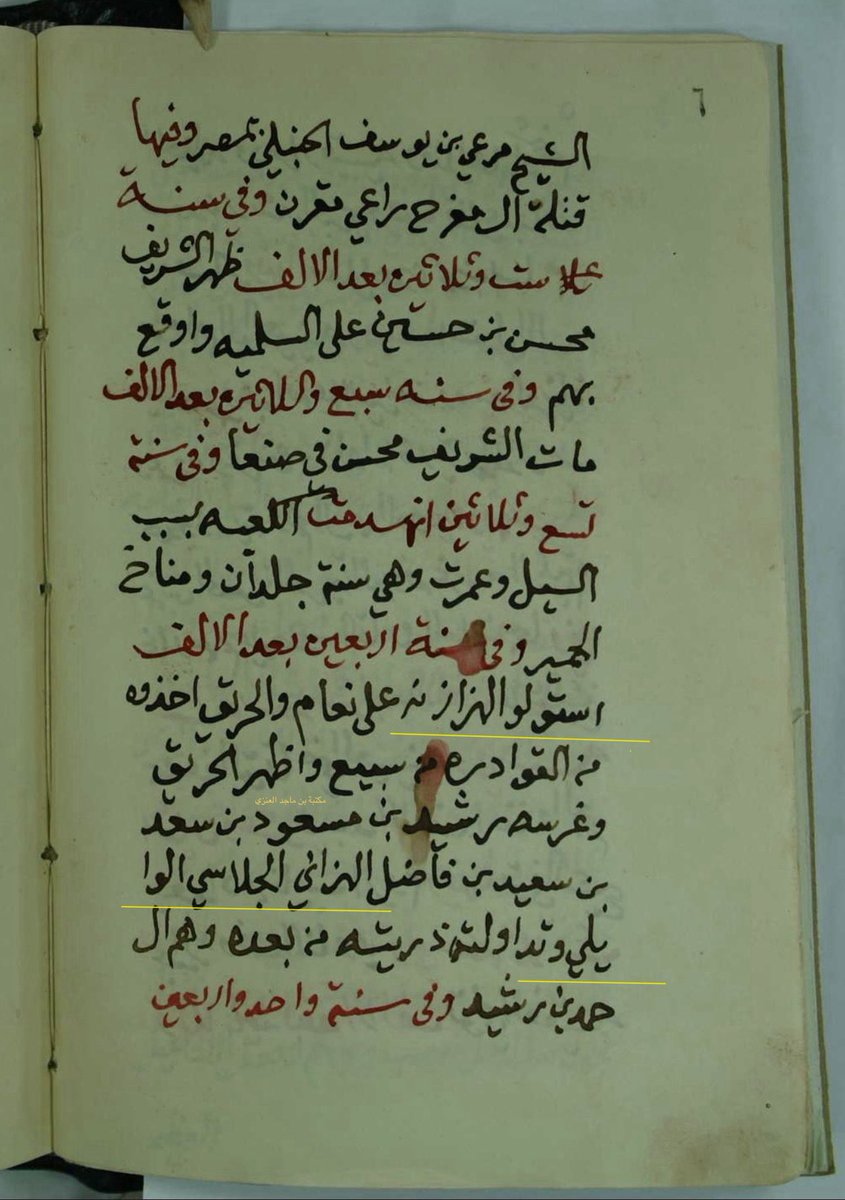 ٦
الشيخ مرعي بن يوسف الحنبلي بمصر وفيها
قتلة آل مفرح راعي مقرن وفي سنة
ست وثلاثين بعد الالف ظهر الشريف
محسن بن حسين على السلميه واوقع
بهم وفي سنه سبع وثلاثين بعد الالف
مات الشريف محسن في صنعا وفي سنة
تسع وثلاثين انهدمت الكعبه بسبب
السيل وعمرت وهي سنة جلدان ومناخ
الحمير وفي سنة اربعين بعد الالف
استولو الهزازنه على نعام والحريق اخذوه
من القوادره من سبيع واظهر الحريق
مكتبة بن ماجد العنزي
وغرسه رشيد بن مسعود بن سعد
بن سعيد بن فاضل الهزاني الجلاسي الوا
يلي وتداولته ذريته من بعده وهم ال
حمد بن رشيد وفي سنة واحد واربعين